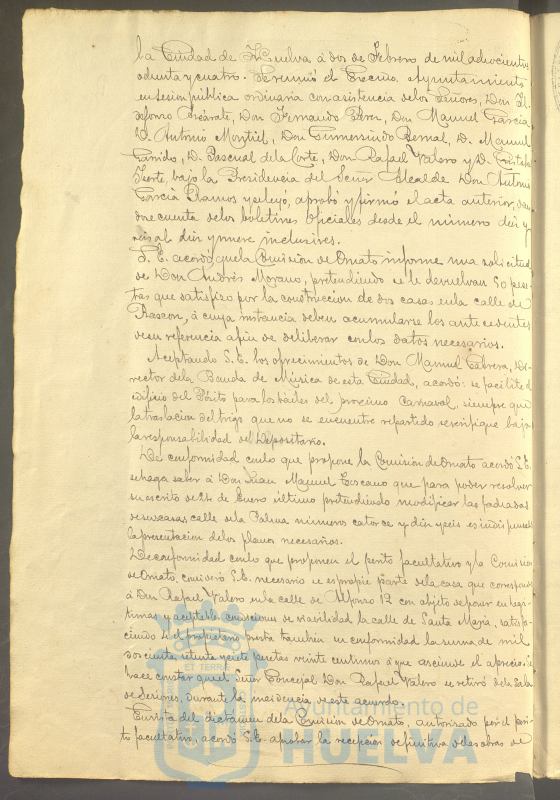 la Ciudad de Huelva á dos de Febrero de mil ochocientos
ochenta y cuatro. Se reunió el Excmo. Ayuntamiento
en sesion pública ordinaria con asistencia de los Señores, Don Il
defonso Azcárate, Don Fernando Perez, Don Manuel Garcia
D. Antonio Montiel, Don Gumersindo Bernal, D. Manuel
Garrido, D. Pascual de la Corte, Don Rafael Valero y D. Cristobal
bajo la Presidencia del Señor Alcalde Don Antonio
Garcia Ramos y se leyó, aprobó y firmó el acta anterior, dan
dose cuenta de los boletines oficiales desde el número diez y
seis al diez y nueve inclusives.
S. E. acordó que la Comision de Ornato informe una solicitud
de Don Andrés Morano, pretendiendo se le devuelvan 50 pese
tas que satisfizo por la construccion de dos casas en la calle de
Rascon, á cuya instancia deben acumularse los antecedentes
de su referencia afin de deliberar con los datos necesarios.
Aceptando S. E. los ofrecimientos de Don Manuel Cabrera, Di
rector de la Banda de Música de esta Ciudad, acordó se facilite el
edificio del Pósito para los bailes del proximo Carnaval, siempre que
la traslacion del trigo que no se encuentre repartido se verifique bajo
la responsabilidad del Depositario.
De conformidad con lo que propone la Comision de Ornato acordó S. E.
se haga saber á Don Juan Manuel Toscano que para poder resolver
su escrito de 24 de Enero último pretendiendo modificar las fachadas
de sus casas calle de la Palma números catorce y diez y seis es indispensable
la presentacion de los planos necesarios.
De conformidad con lo que proponen el perito facultativo y la Comision
de Ornato, S. E. necesario se expropie parte de la casa que corresponde
á Don Rafael Valero en la calle de Alfonso 12 con objeto de poner en legi
timas y aceptables condiciones de viabilidad la calle de Santa Maria, satisfa
ciendo al propietario tambien su conformidad la suma de mil
doscientas setenta y siete pesetas veinte centimos á que asciende el aprecio. Se
hace constar que el Señor Concejal Don Rafael Valero se retiró de la Sala
de Sesiones, durante la incidencia de este acuerdo.
En vista del dictamen de la Comision de Ornato, autorizado por el peri
to facultativo, acordó S. E. aprobar la recepcion definitiva de las obras de
ET TERRÆ
Ayuntamiento de
HUELVA